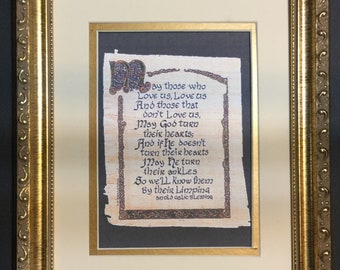 May those who
Love us, Love us
And those that
don't Love us,
May God turn
their hearts;
And if He doesn't
turn their hearts
May He turn
their ankles
So we'll know them
By their Limping
an old gaelic blessing